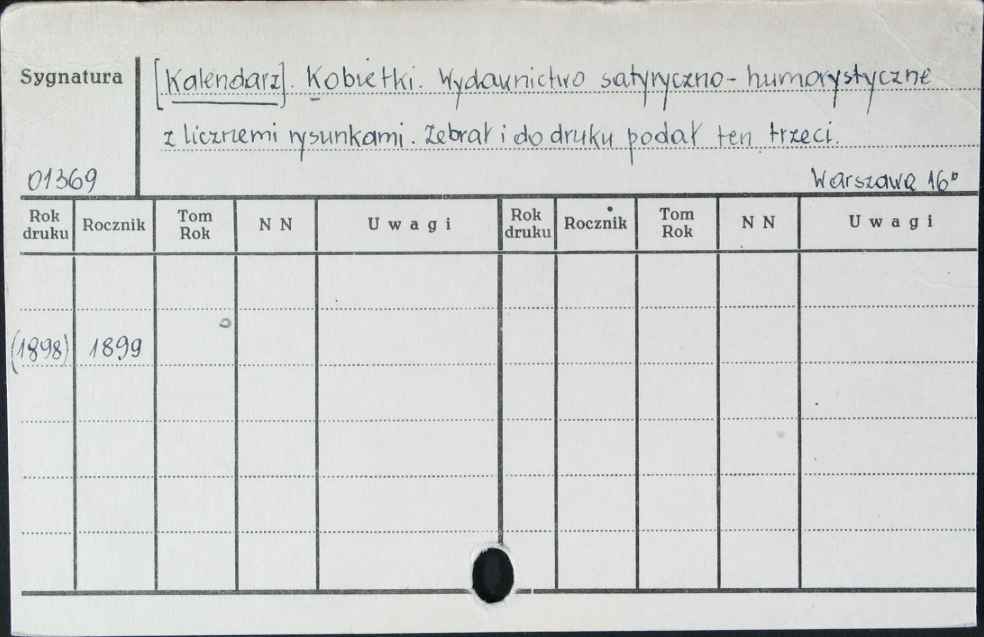 Sygnatura
[Kalendarz]. Kobietki. Wydawnictwo satyryczno-humorystyczne
z licznemi rysunkami. Zebrał i do druku podał ten trzeci.
01369
Warszawa 16°
Rok druku Rocznik Tom Rok N N Uwagi Rok druku Rocznik Tom Rok N N Uwagi
(1898) 1899